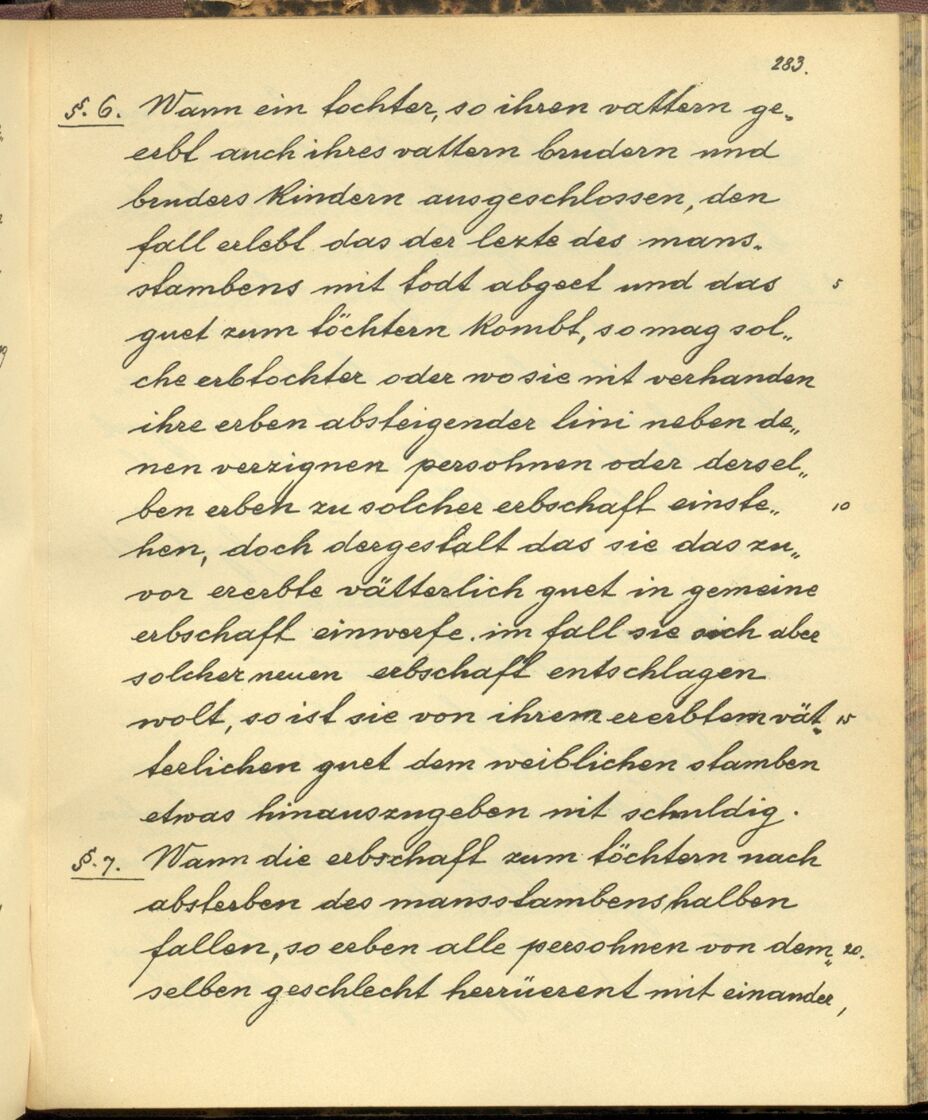 283.
§. 6. Wann ein tochter, so ihren vattern ge„
erbt auch ihres vattern brudern und
bruders Kindern ausgeschlossen, den
fall erlebt das der lezte des mans„
stambens mit todt abgeet und das 5
guet zum töchtern Kombt, so mag sol„
che erbtochter oder wo sie nit verhanden
ihre erben absteigender lini neben de„
nen verzignen persohnen oder dersel„
ben erben zu solcher erbschaft einste„ 10
hen, doch dergestalt das sie das zu„
vor ererbte vätterlich guet in gemeine
erbschaft einwerfe. im fall sie sich aber
solcher neuen erbschaft entschlagen
wolt, so ist sie von ihrem ererbtem vät„ 15
terlichen guet dem weiblichen stamben
etwas hinauszugeben nit schuldig.
§. 7. Wann die erbschaft zum töchtern nach
absterben des mansstambens halben
fallen, so erben alle persohnen von dem„ 20.
selben geschlecht herrüerent mit einander,